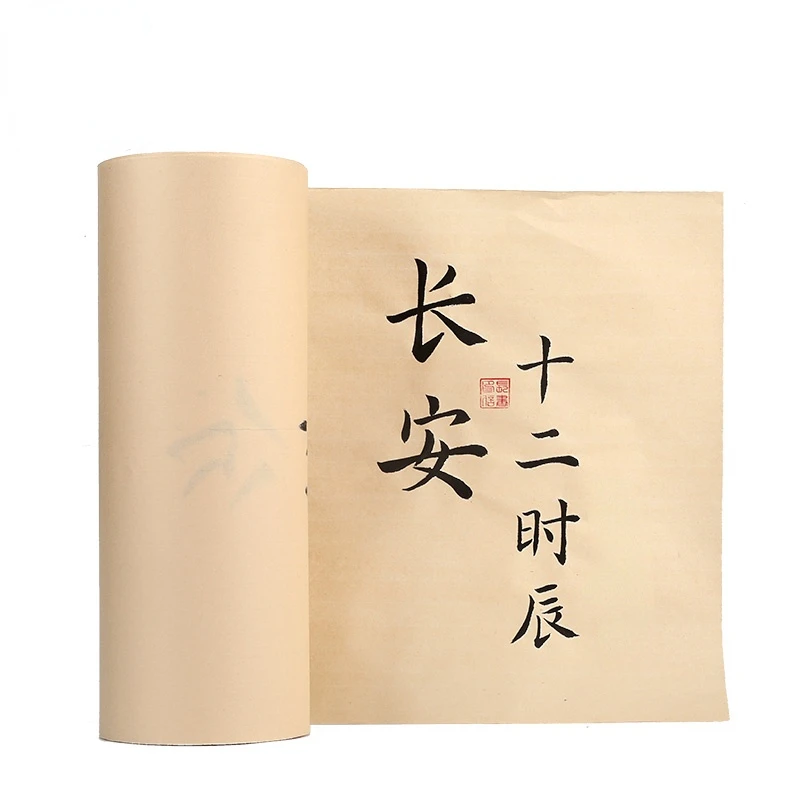 长安
十二时辰